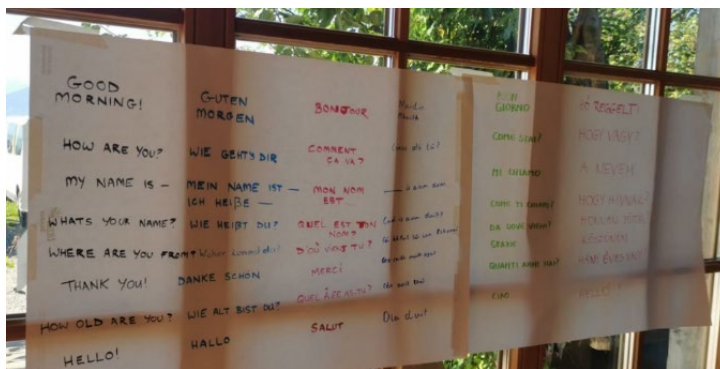 GOOD
MORNING!
HOW ARE YOU?
MY NAME IS —
WHATS YOUR NAME?
WHERE ARE YOU FROM?
THANK YOU!
HOW OLD ARE YOU?
HELLO!
GUTEN
MORGEN
WIE GEHTS DIR
MEIN NAME IST —
ICH HEIßE —
WIE HEIßT DU?
Woher kommst du?
DANKE SCHÖN
WIE ALT BIST DU?
HALLO
BONJOUR
COMMENT
ÇA VA?
MON NOM
EST
QUEL EST TON
NOM?
D'OÙ VIENS TU?
MERCI
QUEL ÂGE AS-TU?
SALUT
Maidin
Dia duit
BON
GIORNO
COME STAI?
MI CHIAMO
COME TI CHIAMI?
DA DOVE VIENI?
GRAZIE
QUANTI ANNI HAI?
CIAO
JÓ REGGELT!
HOGY VAGY?
A NEVEM
HOGY HÍVNAK?
HONNAN
KÖSZÖNÖM
HÁNY ÉVES VAGY?
HELLÓ!